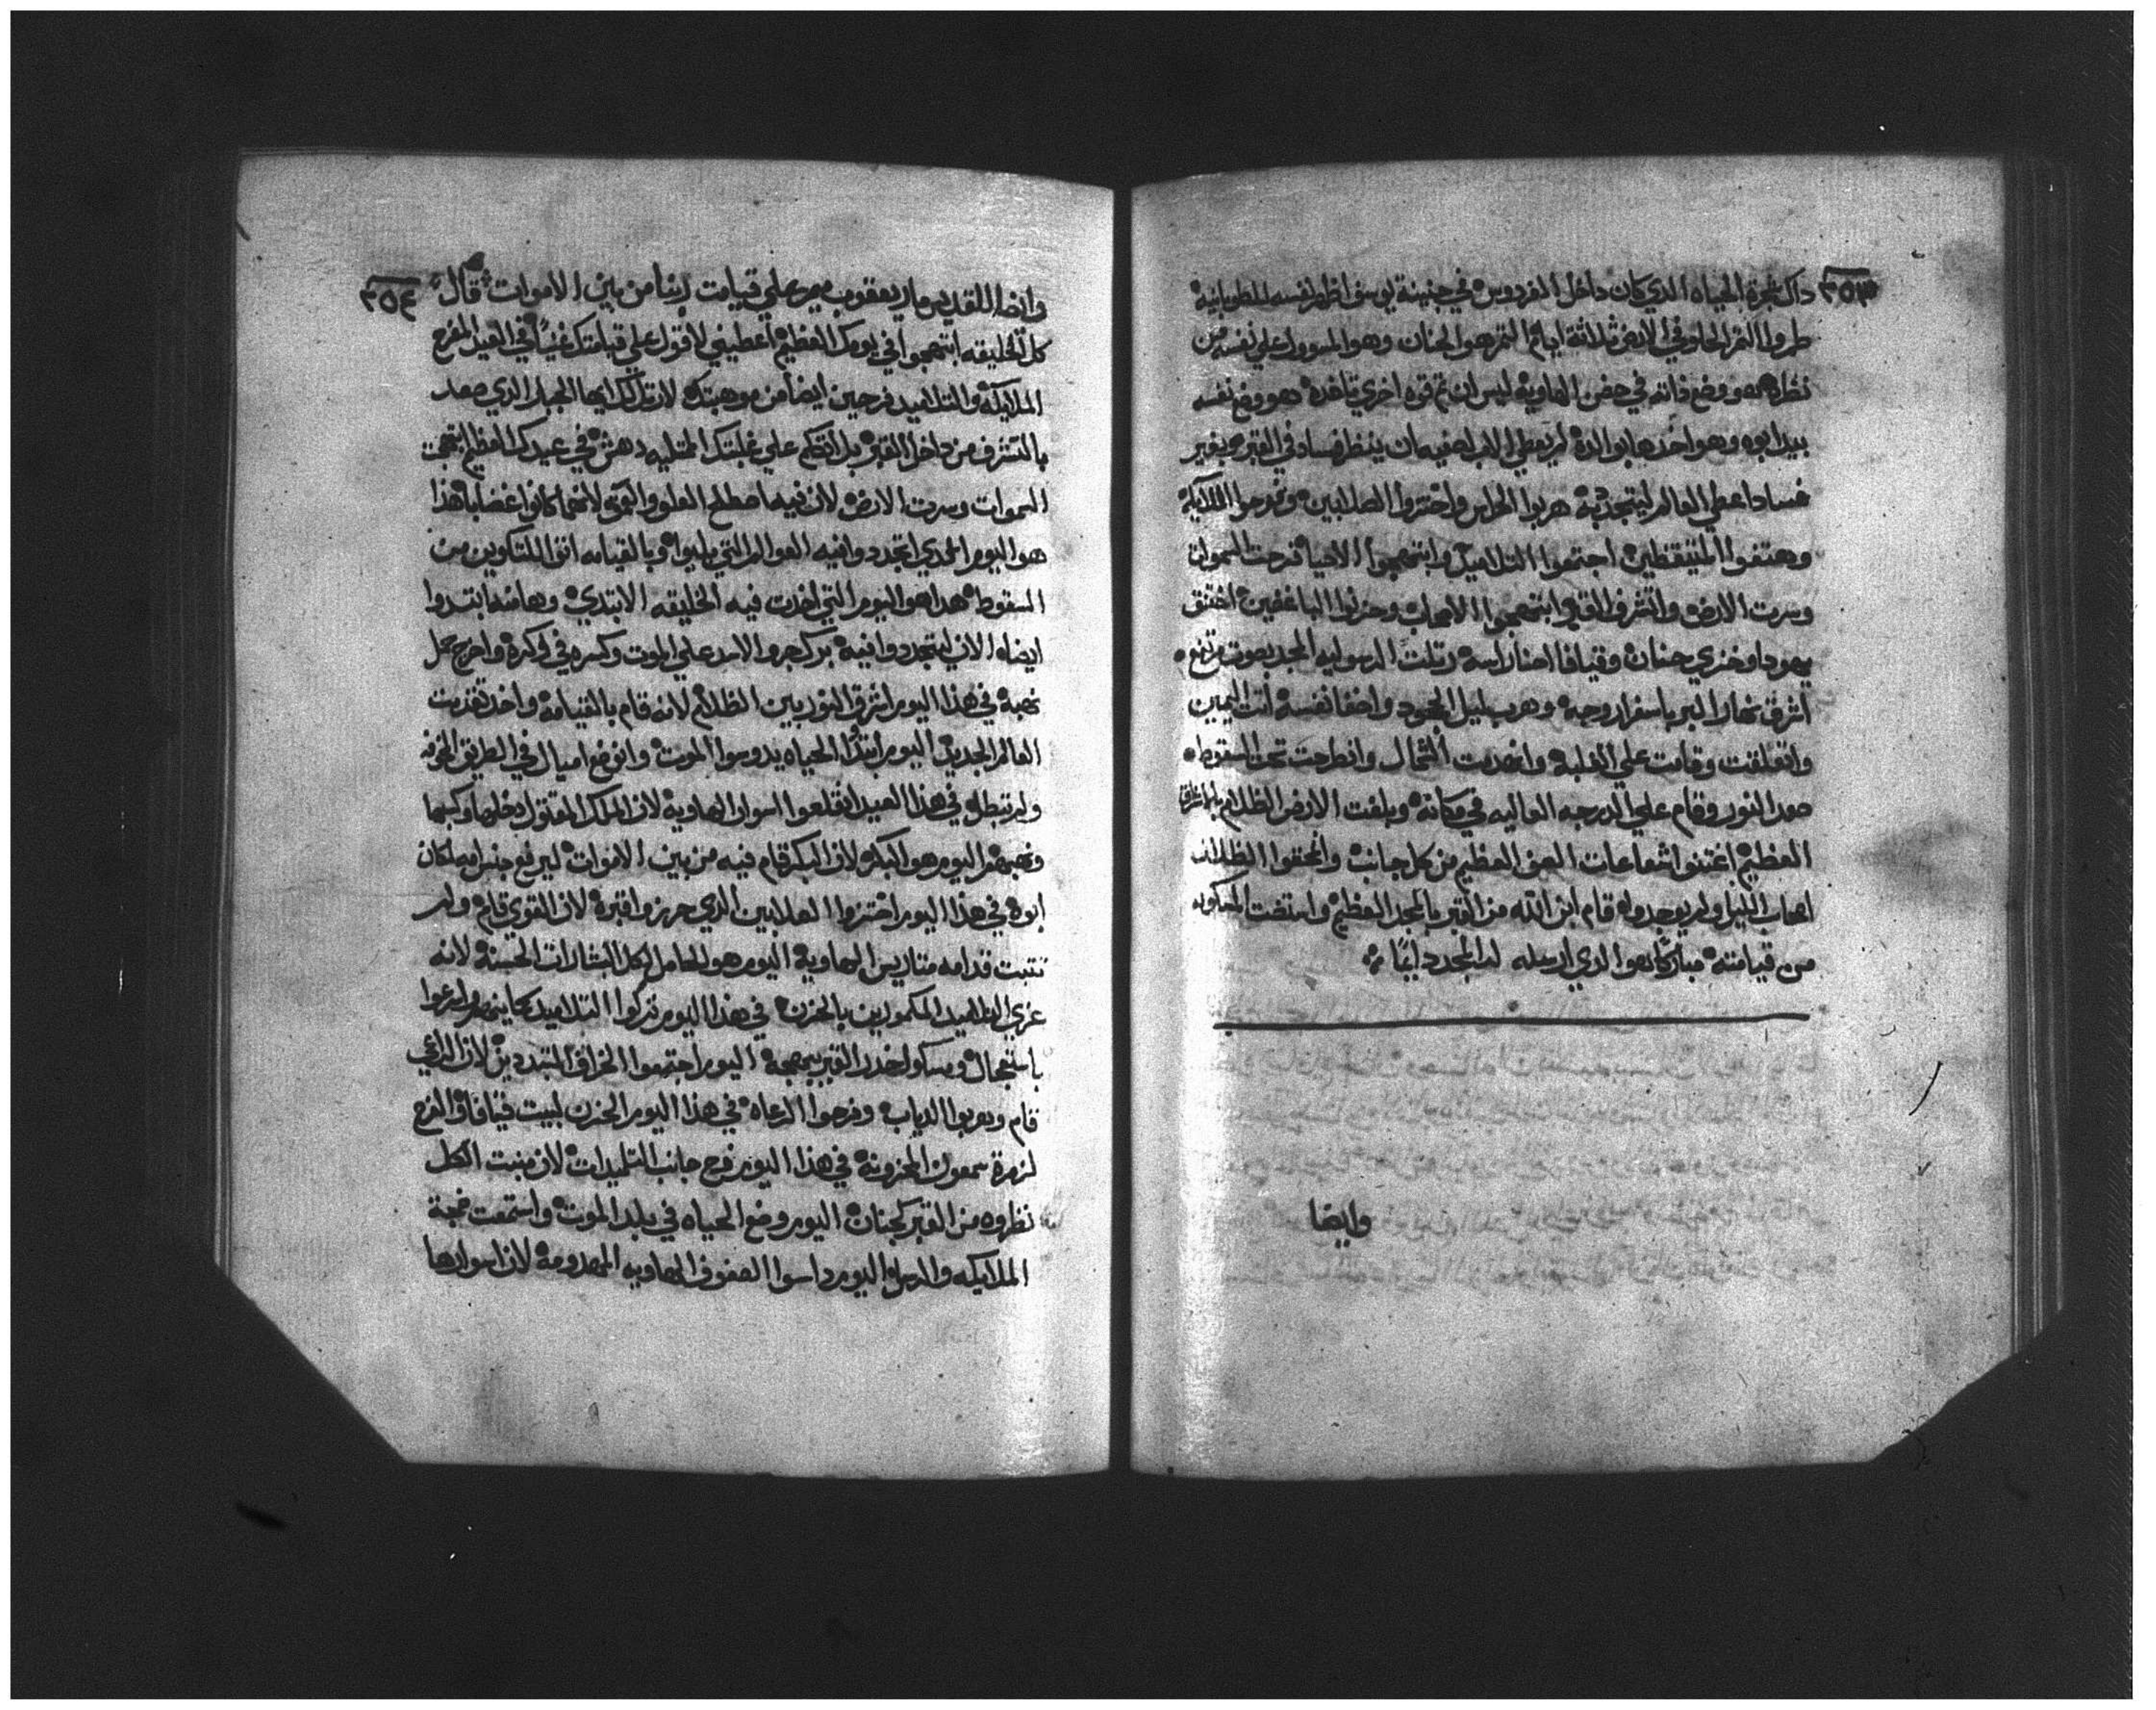 ٣٥٣
داك شجرة الحياه الدي كان داخل الفردوس في جنينة يوسف اظهر نفسه للطوبانيه
طمروا التمر الحلو في الارض ثلاثة ايام التمر هو الجنان وهو المسوول علي نفسه من
نظره ووضع ذاته في حضن الهاويه ليس ان تم قوه اخري تاخده هو وضع نفسه
بيد ابوه وهو اخدها بوالده لم يعطي الاب لصفيه ان ينظر فساد في القبر وبغير
فساد اعطي العالم ليتجدد به هربوا الحراس واختزوا الصلابين وفرحوا الملايكه
وهتفوا المتيقظين اجتمعوا التلاميد وابتهجوا الاحيا فرحت السموات
وسرت الارض واشرف القبر ابتهجوا الاصحاب وحزنوا الباغضين اختنق
يهودا وخزي حنان وقيافا احنا راسه رتلت الرسوليه المجد بصوت مرتفع
اشرق نهار البر باسفار وجهه وهرب ليل الجحود واخفا نفسه انت اليمين
واتعلقت وقامت علي الغلبه واخدت الشمال وانطرحت تحت السقوط
صعد النور وقام علي الدرجه العاليه في مكانه وبلغت الارض الظلام
العظيم اغتنوا شعاعات الضو العظيم من كل جانب وانمحقوا الظلال
اصحاب الليل ولم يوجدوا قام ابن الله من القبر بالمجد العظيم واستضت المسكونه
من قيامته مباركا هو الدي ارسله له المجد دايما
وايضا
٣٥٤
وايضا للقديس مار يعقوب ميمر علي قيامت ربنا من بين الاموات قال
كل الخليقه ابتهجوا في يومك العظيم اعطيني لاقول علي قيامتك غنيا في العيد المفرح
الملايكه والتلاميد فرحين ايضا من موهبتك لارتل لك ايها الجبار الدي صعد
بالتشرف من داخل القبر بل اتكلم علي غلبتك الممتليه دهش في عيدك العظيم ابتهجت
السموات وسرت الارض لان فيه اصطلح العلو والعمق لانهما كانوا غضابا هذا
هو اليوم الدي اتجددوا فيه العوالم التي بليوا وبالقيامه اتقا للتكوين من
السقوط هدا هو اليوم التي اخدت فيه الخليقه الابتدي وها منه ابتدوا
ايضاه الان ليتجددوا فيه برك جرو الاسد علي الموت وكسره في وكره واخرج جمل
نهبه في هذا اليوم اشرق النور بين الظلام لانه قام بالقيامه واخد تقدمت
العالم الجديد اليوم ابتدا الحياه يدوسوا الموت وانوضع اميال في الطريق المخوفه
ولم تبطل في هذا العيد انقلعوا اسوار الهاويه لان الملك المقتول دخلها وكبسها
ونهبها اليوم هو البكر لان البكر قام فيه من بين الاموات ليرفع جنس امه لمكان
ابوه في هذا اليوم اختزوا الصلابين الدي حرزوا قبره لان القوي قام ولم
تتبت قدامه متاريس الهاويه اليوم هو الحامل لكل البشارات الحسنه لانه
عزي التلاميد المكمودين بالحزن في هذا اليوم تركوا التلاميد مكاينهم واسرعوا
باستعجال ومسكوا خدر القبر ببهجه اليوم اجتمعوا الخراف المتبددين لان الراعي
قام وهربوا الدياب وفرحوا الرعاه في هذا اليوم الحزن لبيت قيافا والفرح
لزمرة سمعون المحزونه في هذا اليوم فرح جانب التلميدات لان منبت الكل
نظروه من القبر كجنان اليوم وضع الحياه في بلد الموت واستمعت ضجة
الملايكه والرسل اليوم داسوا الصفوف الهاويه المهدومه لان اسوارها